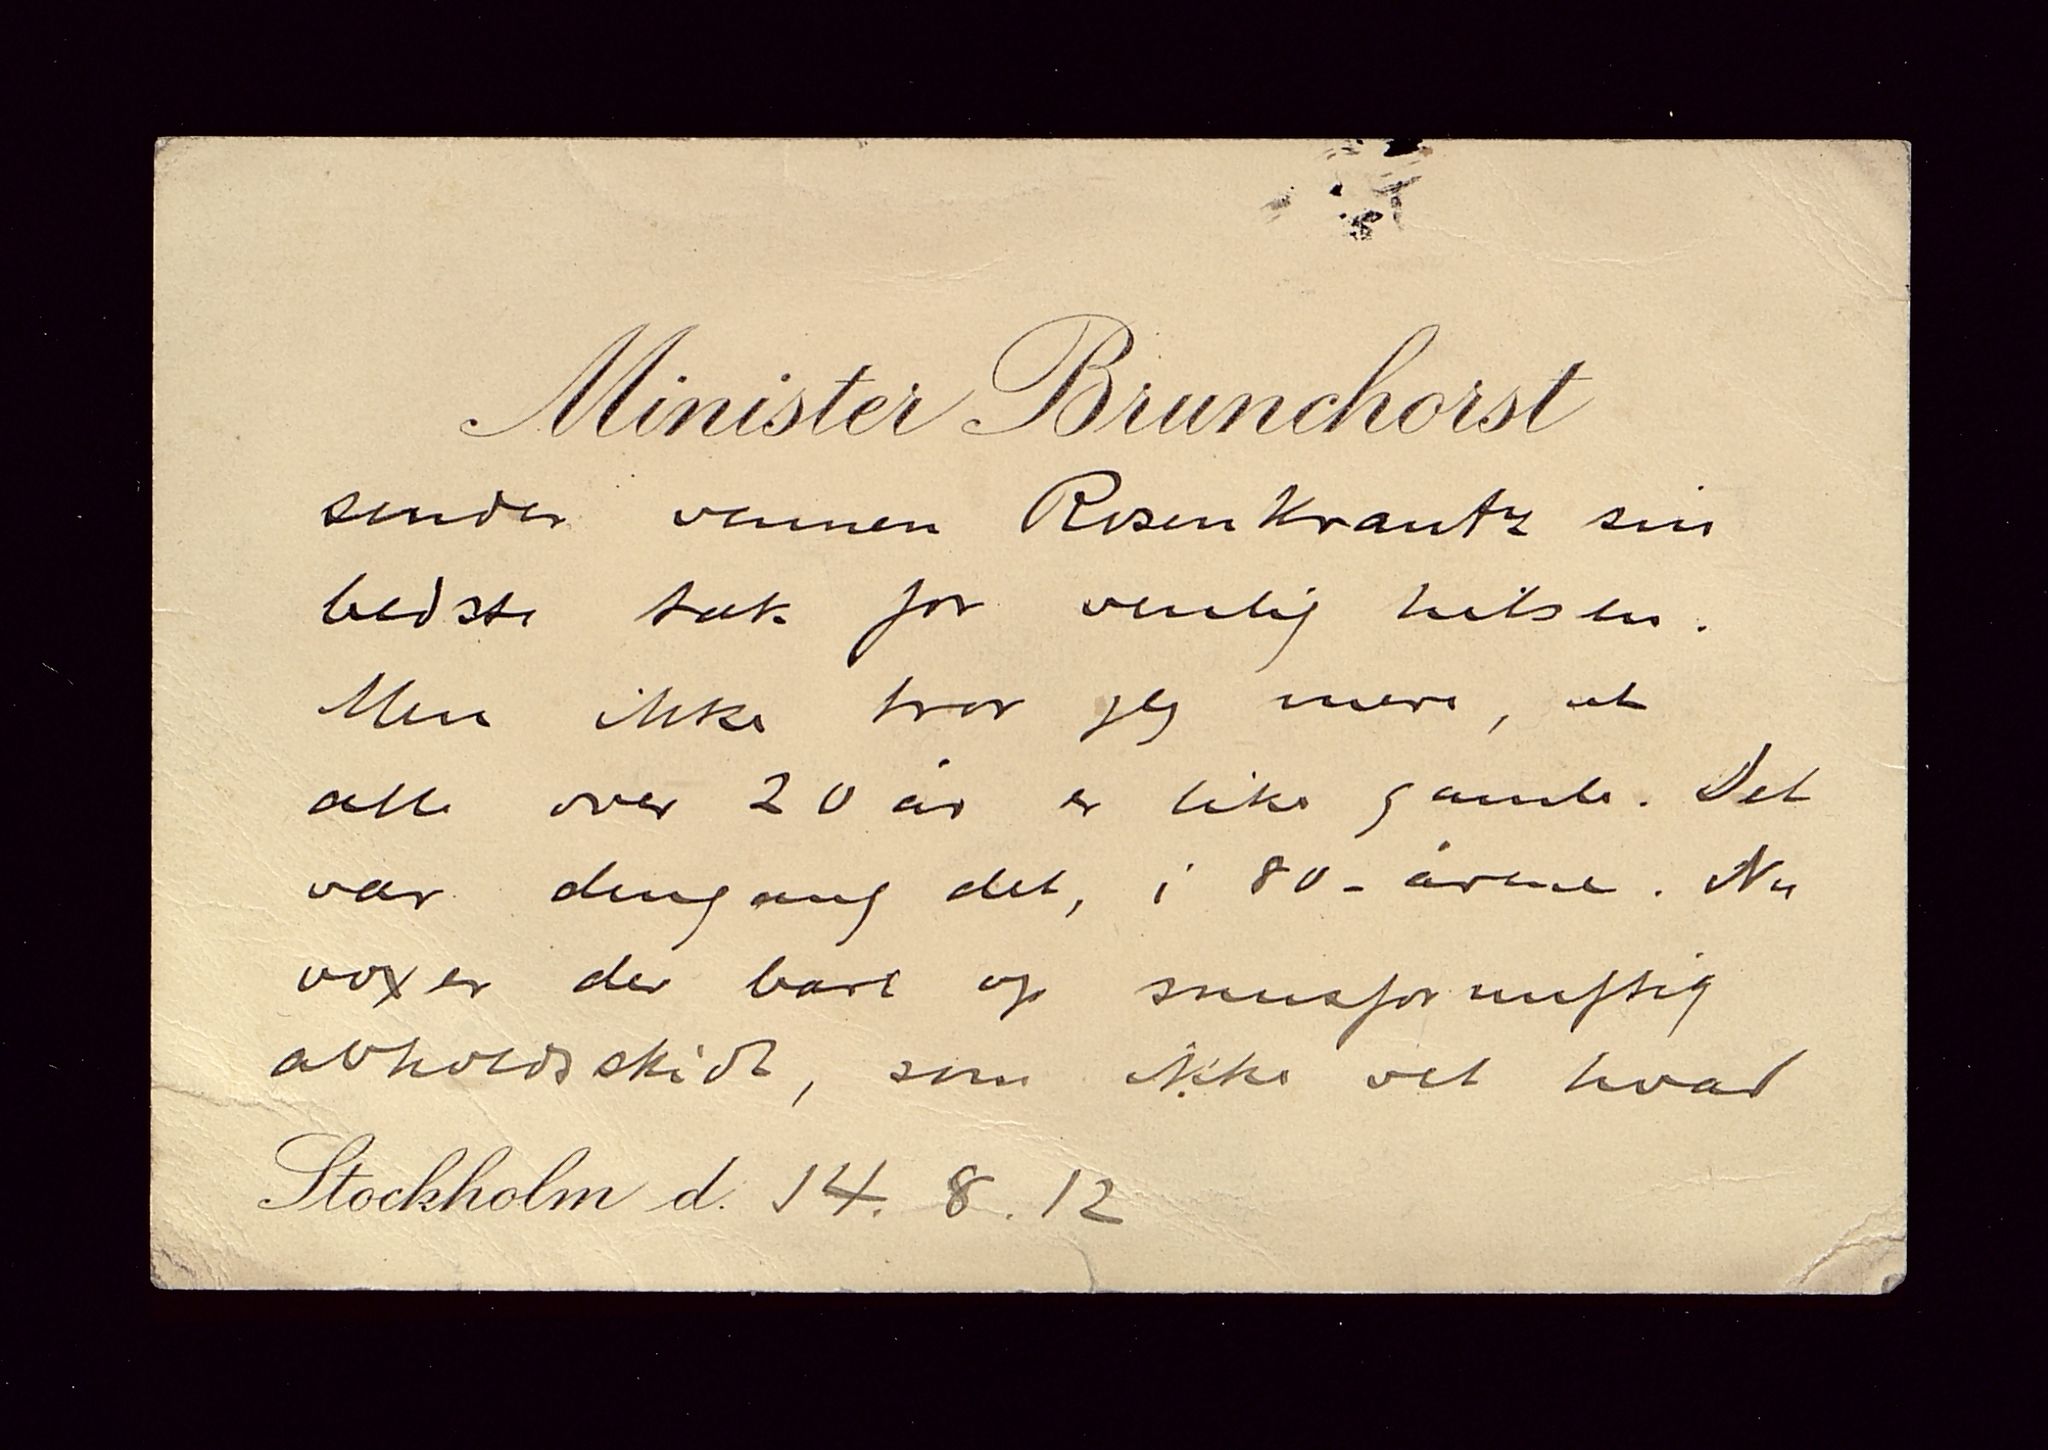 Minister Brunchorst
sender vennen Rosenkrantz sin
bedste tak for venlig hilsen.
Men ikke tror jeg mere, at
alle over 20 år er like gamle. Det
var dengang det, i 80-årene. Nu
voxer der bare op snusfornuftig
avholdsskidt, som ikke vet hvad
Stockholm d. 14. 8. 12